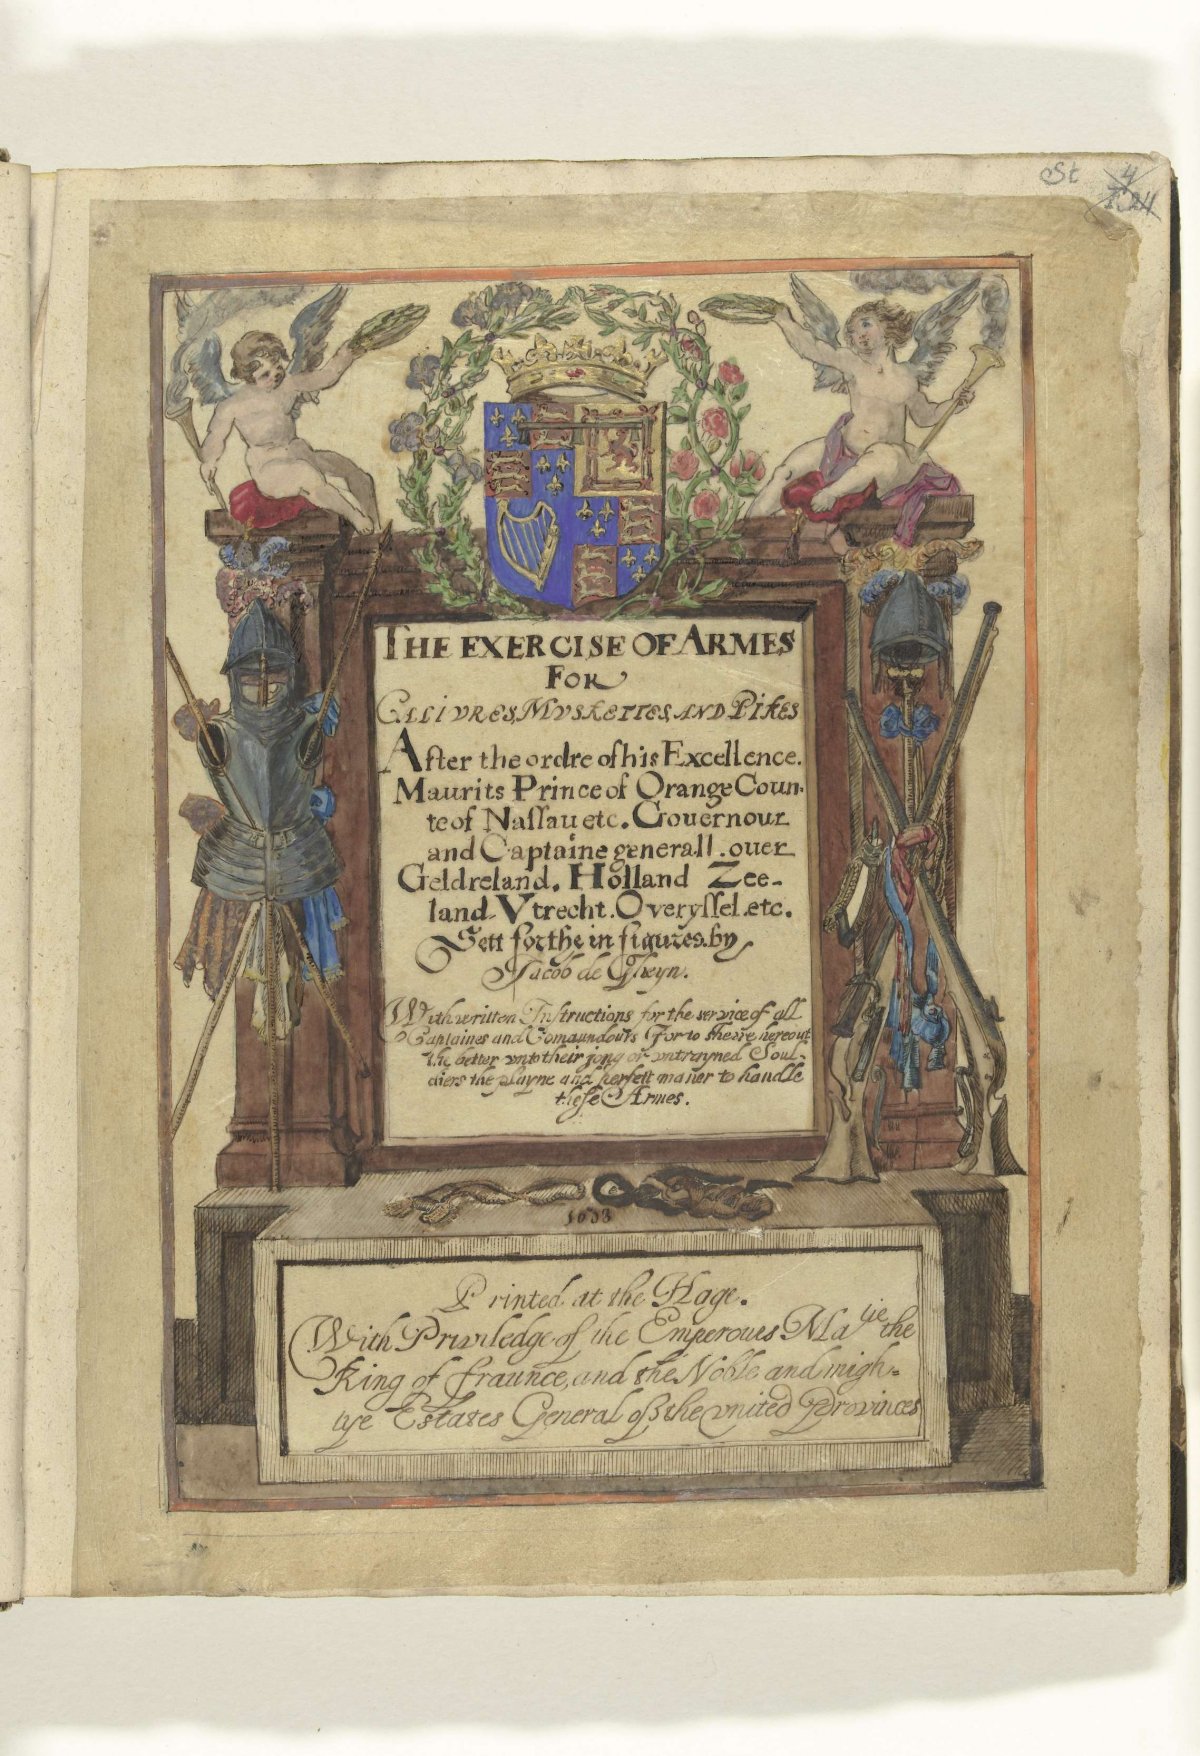 St 4
THE EXERCISE OF ARMES
FOR
CALIVRES, MVSKETTES, AND PIKES
After the ordre of his Excellence.
Maurits Prince of Orange Coun-
te of Nassau etc. Gouernour
and Captaine generall. ouer
Geldreland. Holland Zee-
land. Vtrecht. Overyssel. etc.
Sett forthe in figures. by
Jacob de Gheyn.
With written Instructions for the service of all
Captaines and Comaundours For to shewe hereout
the better vnto their jong or vntrayned Soul-
diers the playne and perfett maner to handle
these Armes.
1608
Printed at the Hage.
With Priviledge of the Emperoues Matie the
King of fraunce, and the Noble and migh-
tye Estates General of the vnited Provinces